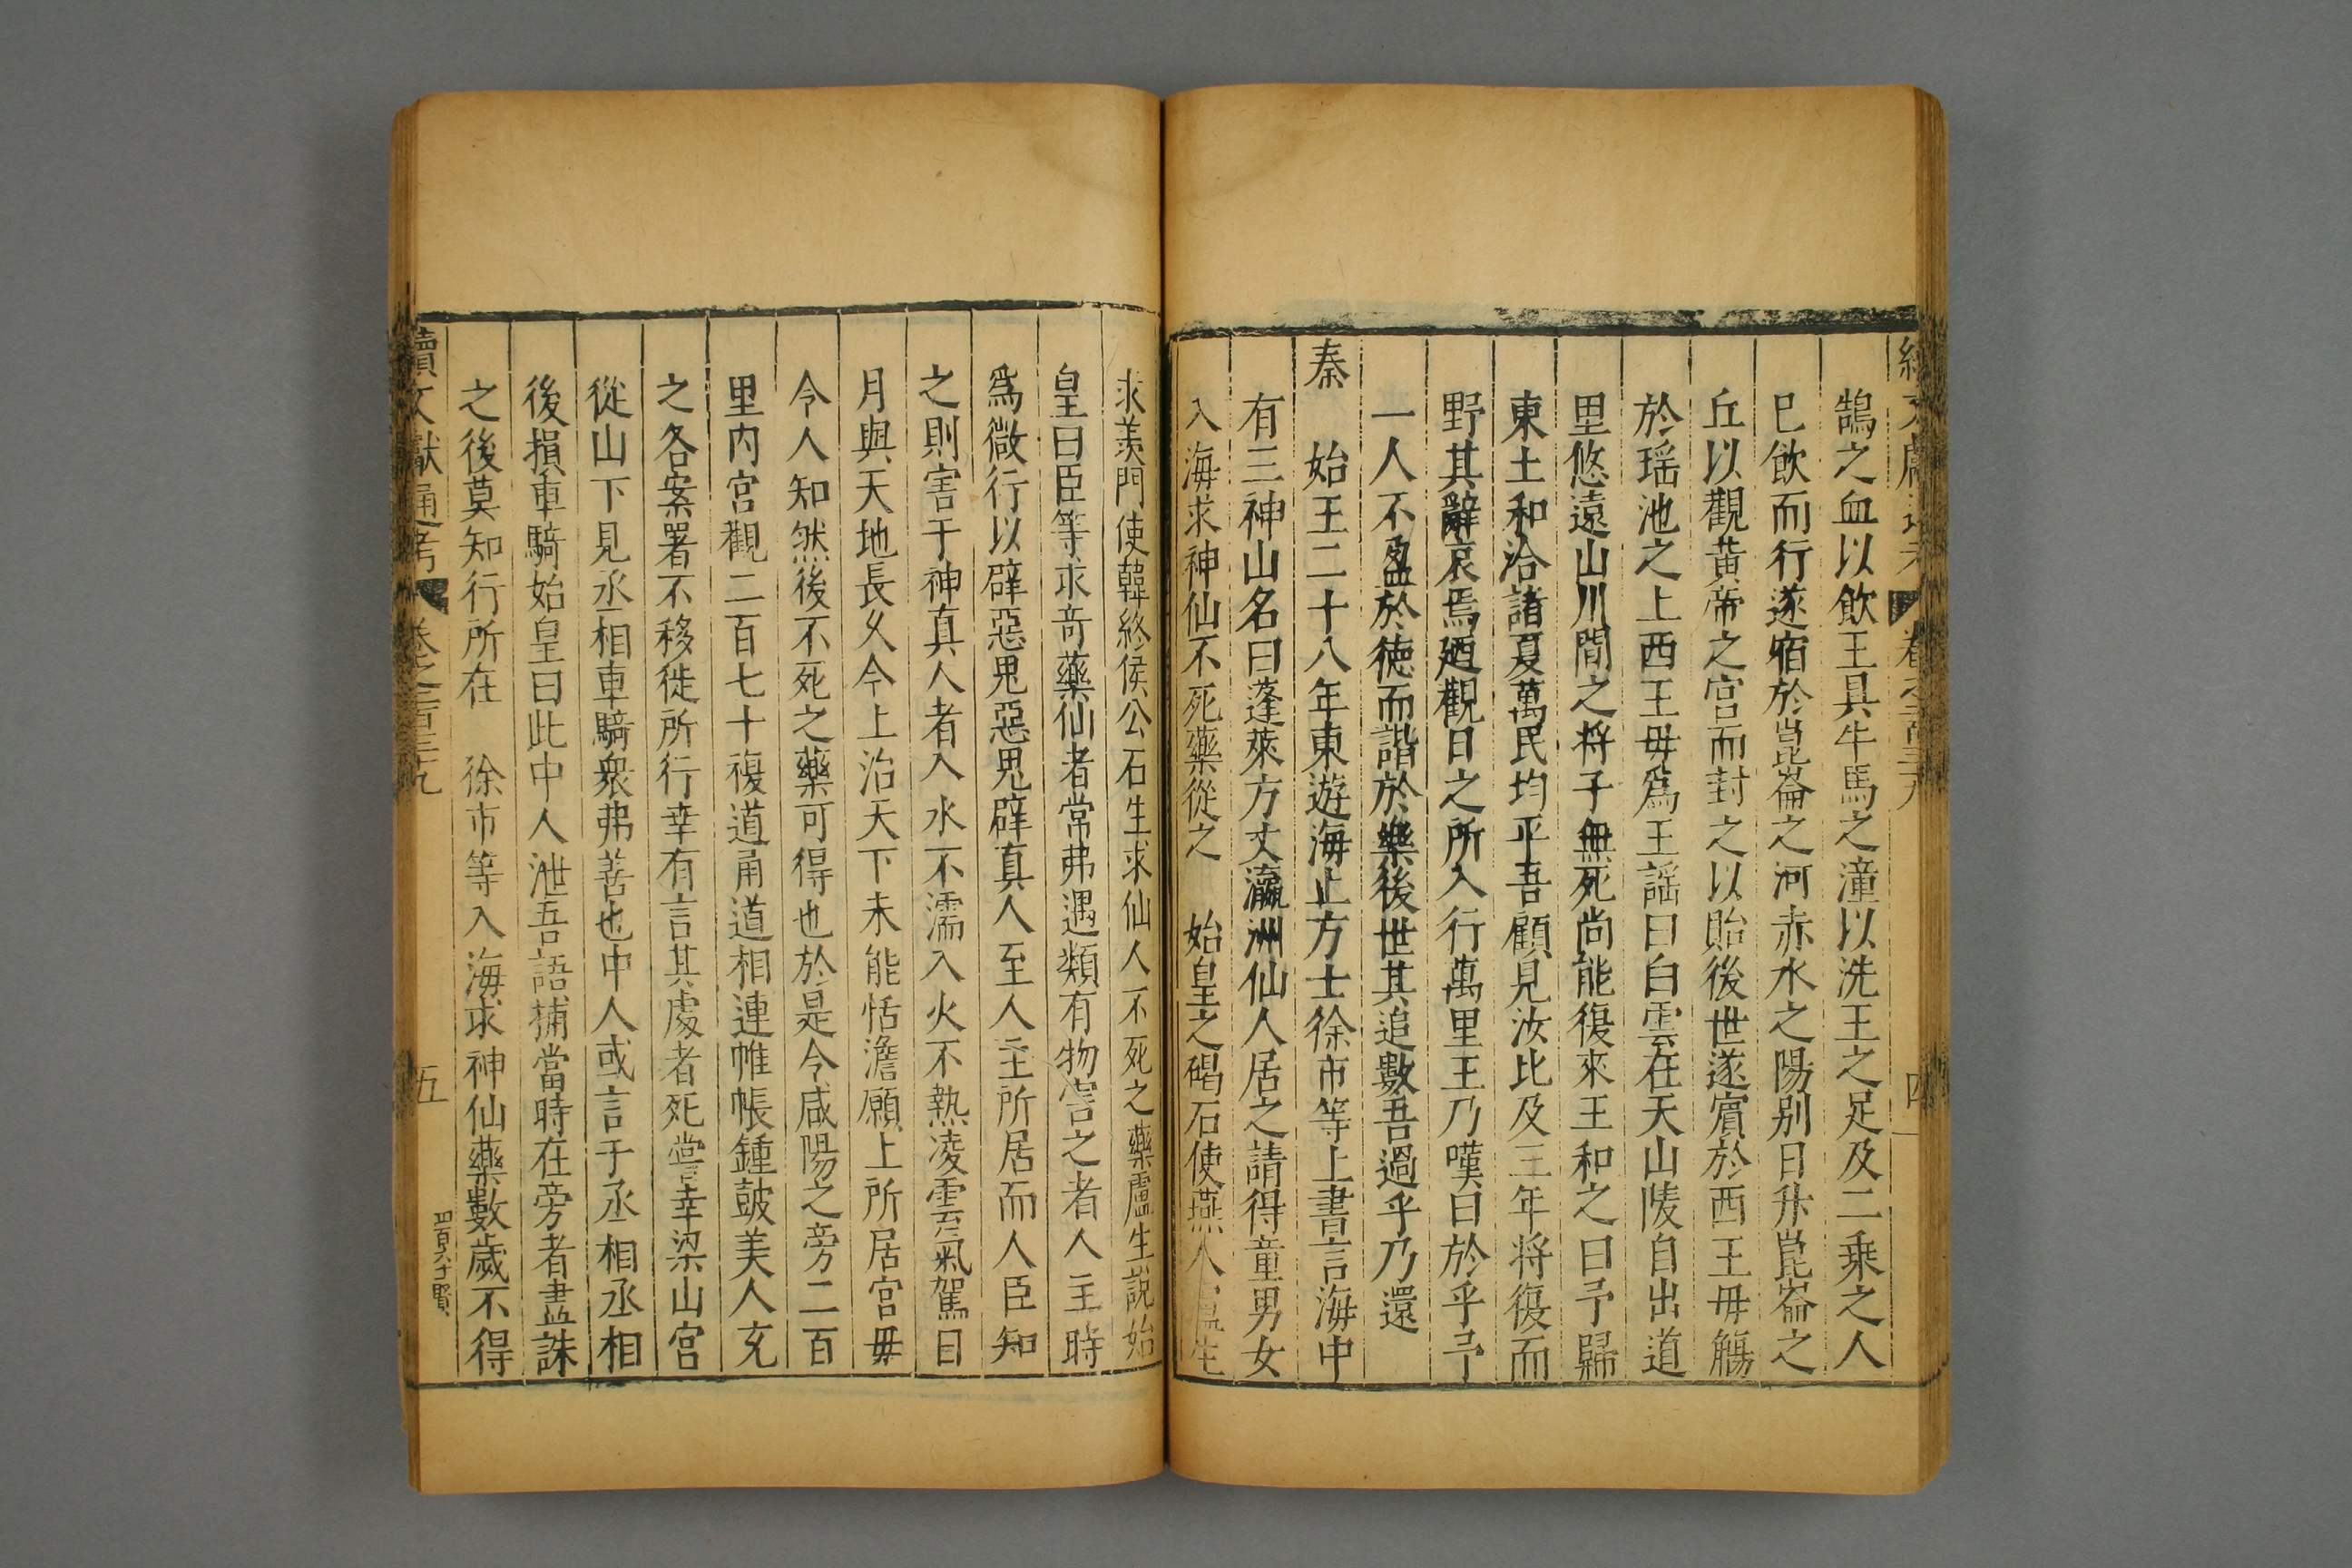 鵠之血以飲王具牛馬之湩以洗王之足及二乘之人
已飲而行遂宿於崑崙之河赤水之陽别日升崑崙之
丘以觀黄帝之宫而封之以貽後世遂賓於西王母觴
於瑶池之上西王毋爲王謡曰白雲在天山陵自出道
里悠遠山川間之將子無死尚能復來王和之曰予歸
東土和洽諸夏萬民均平吾顧見汝比及三年将復而
野其辭哀焉廼觀日之所入行萬里王乃嘆曰於乎予
一人不盈於徳而諧於樂後世其追數吾過乎乃還
秦　始王二十八年東遊海上方士徐市等上書言海中
有三神山名曰蓬萊方丈瀛洲仙人居之請得童男女
入海求神仙不死藥從之　始皇之碣石使燕人盧生
求羨門使韓終侯公石生求仙人不死之藥盧生説始
皇曰臣等求奇藥仙者常弗遇類有物害之者人主時
爲微行以辟惡鬼惡鬼辟真人至人主所居而人臣知
之則害于神真人者入水不濡入火不熱凌雲氣駕日
月與天地長久今上治天下未能恬澹願上所居宫毋
令人知然後不死之藥可得也於是令咸陽之旁二百
里内宫觀二百七十複道甬道相連帷帳鍾皷美人充
之各案署不移徙所行幸有言其處者死嘗幸梁山宫
從山下見丞相車騎衆弗善也中人或言于丞相丞相
後損車騎始皇曰此中人泄吾語捕當時在旁者盡誅
之後莫知行所在　徐市等入海求神仙藥數歲不得
續文獻通考　卷之二百三十九　五